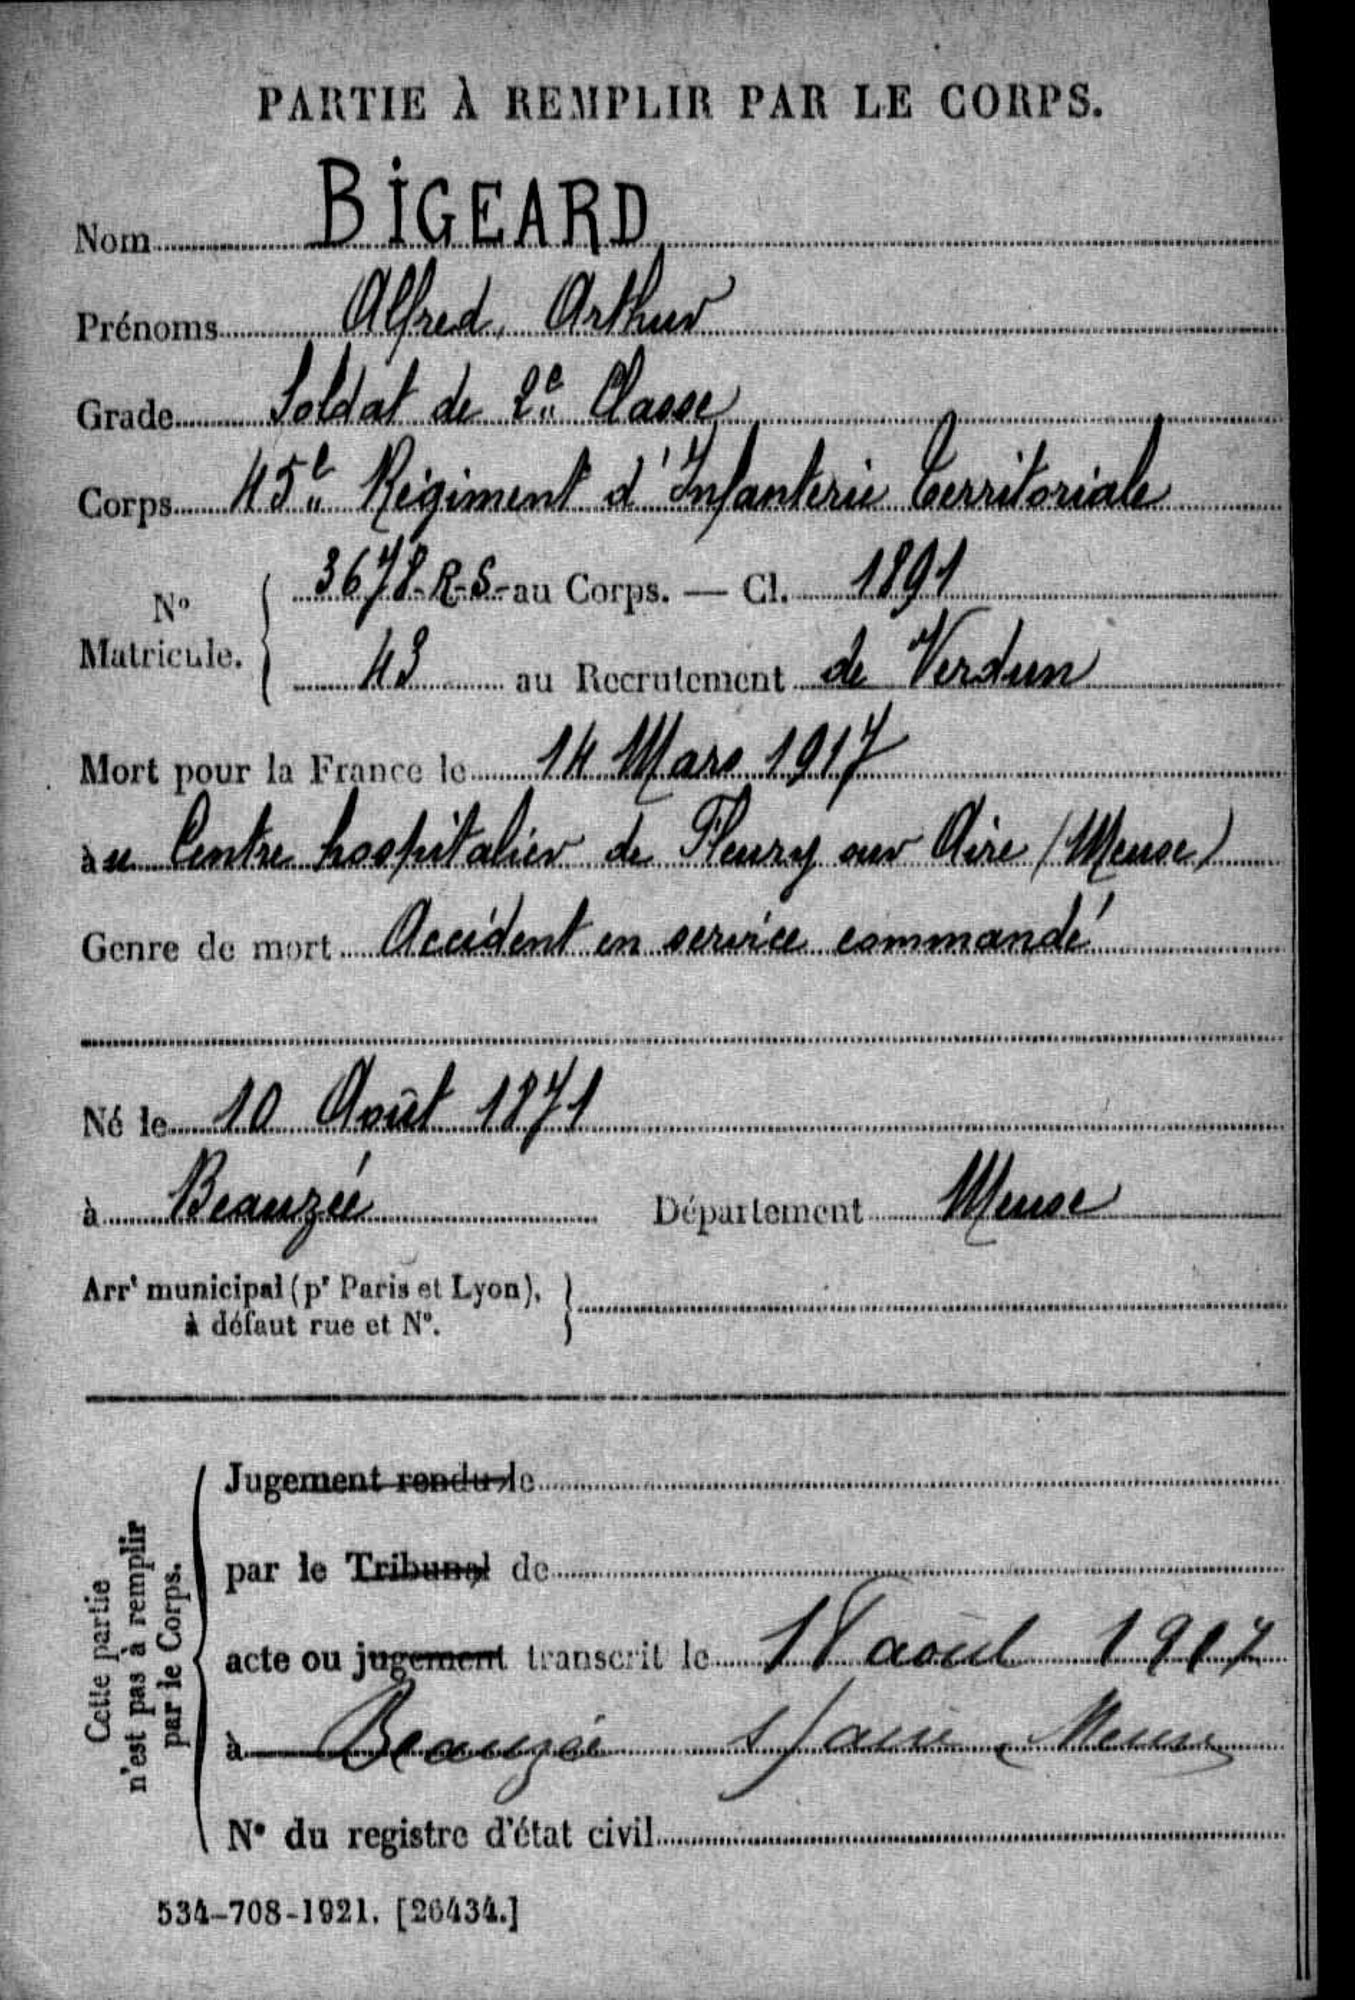 PARTIE À REMPLIR PAR LE CORPS.
Nom BIGEARD
Prénoms Alfred, Arthur
Grade Soldat de 2e Classe
Corps 45e Régiment d'Infanterie Territoriale
No Matricule. 3678-R-S- au Corps. — Cl. 1891
43 au Recrutement de Verdun
Mort pour la France le 14 Mars 1917
au Centre hospitalier de Fleury sur Aire (Meuse)
Genre de mort Accident en service commandé
Né le 10 Août 1871
à Beauzée Département Meuse
Arrt municipal (pr Paris et Lyon),
à défaut rue et No.
Cette partie
n'est pas à remplir
par le Corps.
Jugement rendu le
par le Tribunal de
acte ou jugement transcrit le 18 août 1917
à Beauzée s/ aire Meuse
No du registre d'état civil
534-708-1921. [26434.]